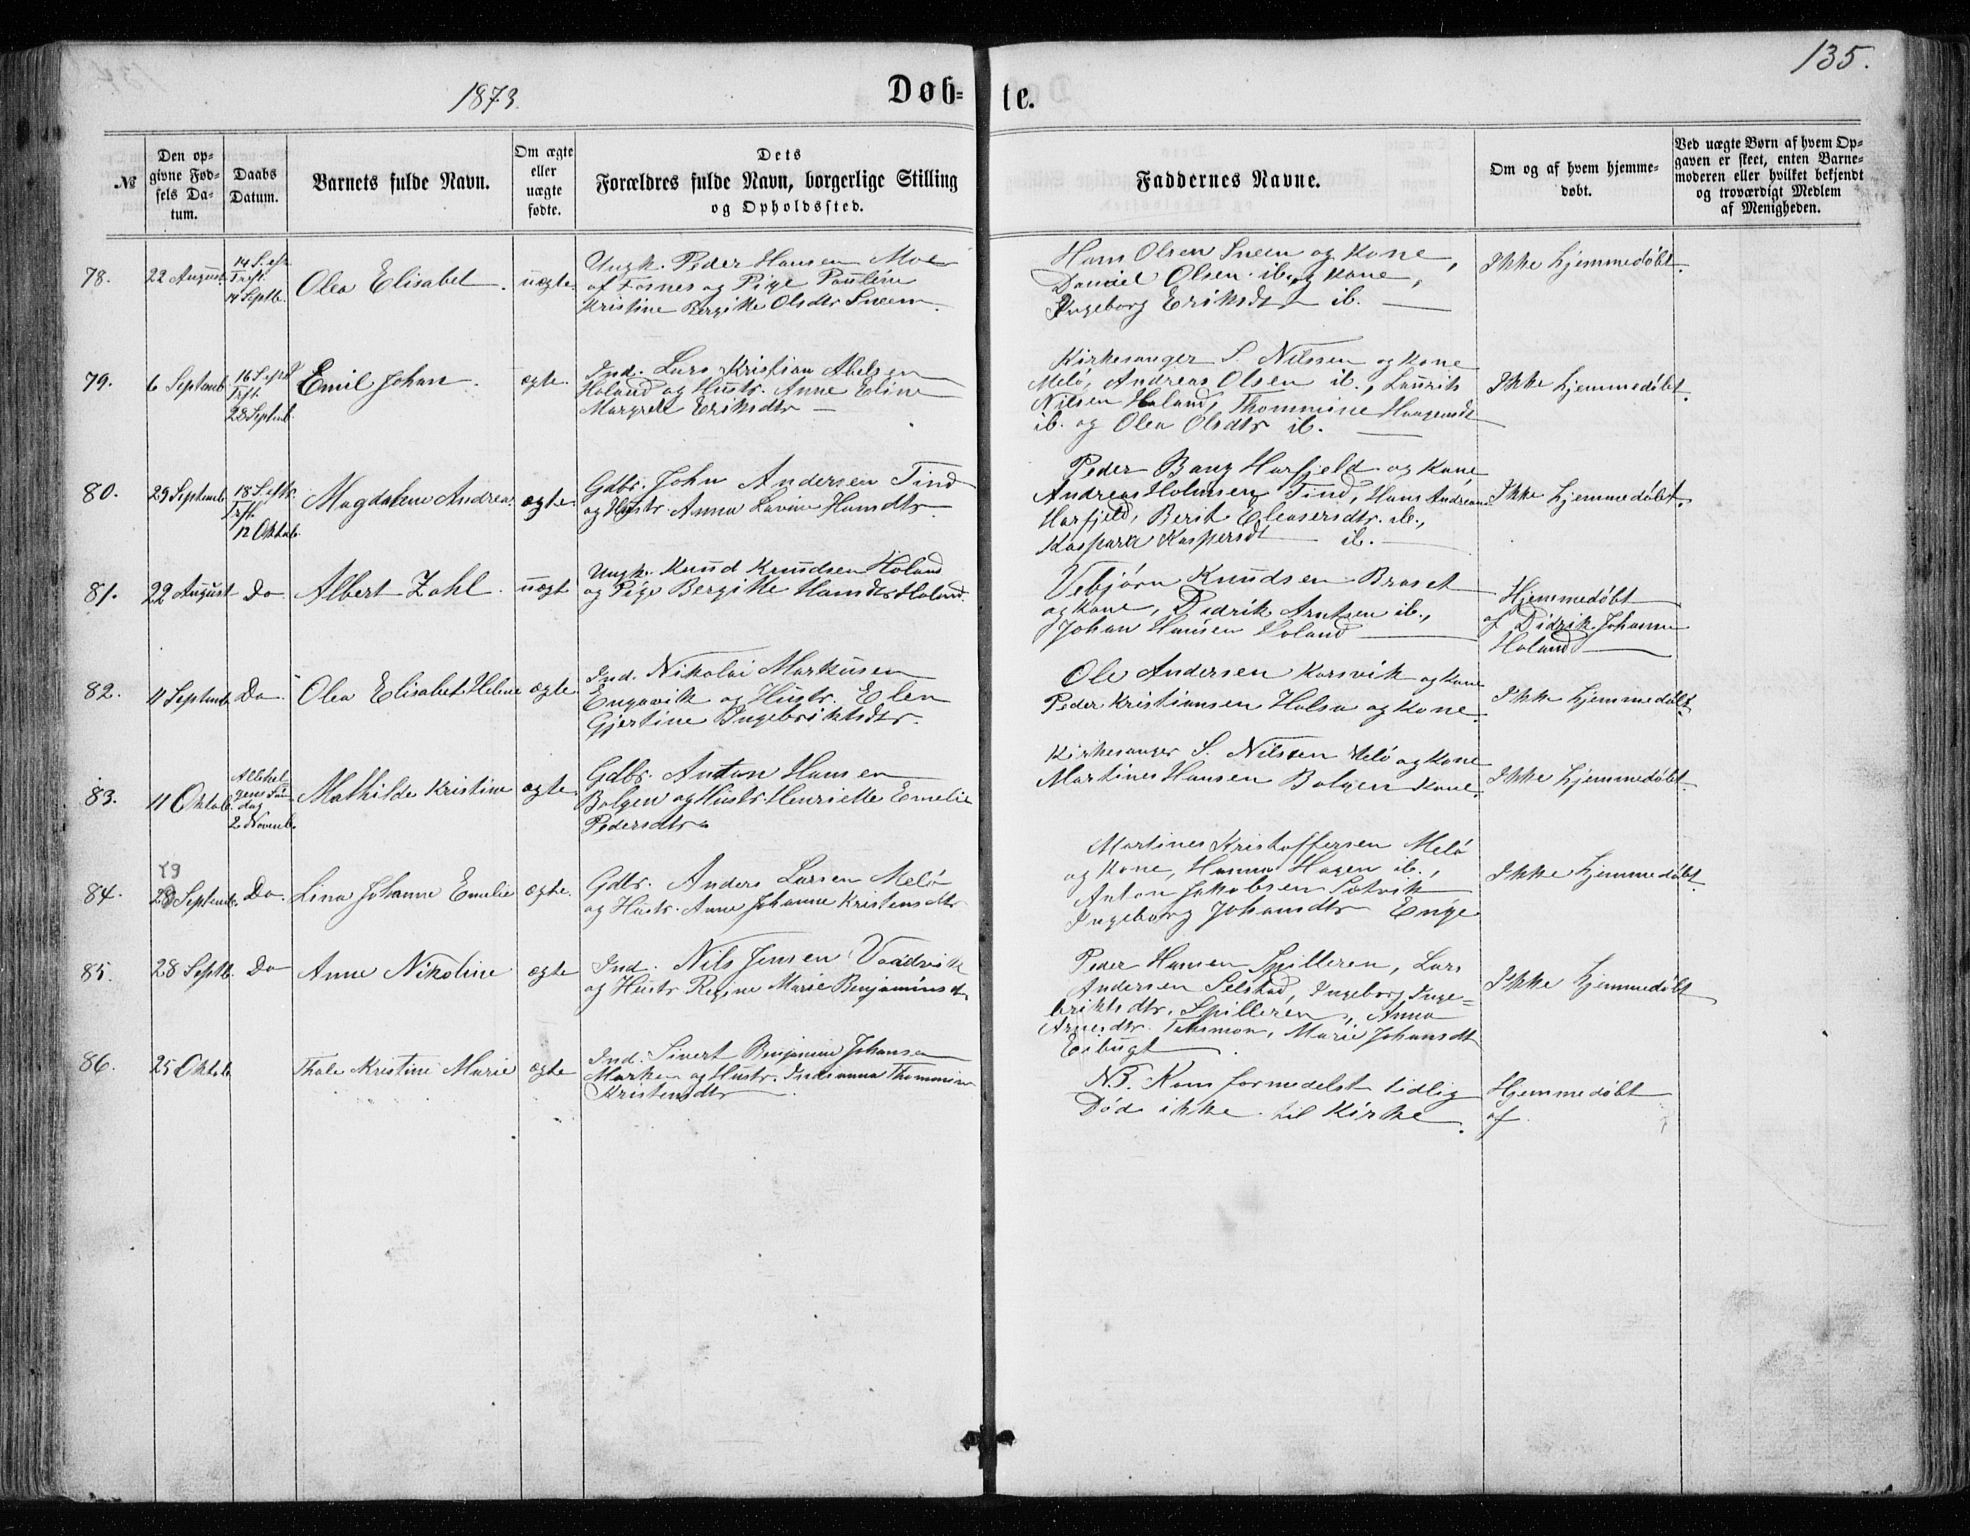 135.
1873.
Døb-
te.
№
Den op-
givne Fød-
sels Da-
tum.
Daabs
Datum.
Barnets fulde Navn.
Om ægte
eller
uægte
fødte.
Dets
Forældres fulde Navn, borgerlige Stilling
og Opholdssted.
Faddernes Navne.
Om og af hvem hjemme-
døbt.
Ved uægte Børn af hvem Op-
gaven er skeet, enten Barne-
moderen eller hvilket bekjendt
og troværdigt Medlem
af Menigheden.
78.
22 August.
14 S. eft.
Trft.
14 Septb.
Olea Elisabet.
uægte.
Ungk. Peder Hansen Moe
af Fosnes og Pige Pauline
Kristine Bergitte Olsdtr Sneen.
Hans Olsen Sneen og Kone,
Daniel Olsen ib. og Kone,
Ingeborg Eriksdt ib.
Ikke hjemmedøbt.
79.
6 Septemb.
16 S. eft
Trft.
28 Septemb.
Emil Johan.
ægte.
Ind. Lars Kristian Abelsen
Holand og Hustr. Anne Eline
Margrete Eriksdtr
Kirkesanger S. Nilssen og Kone
Melö, Andreas Olsen ib., Laurits
Nilsen Holand, Thommine Haagensdt
ib. og Olea Olsdtr ib.
Ikke hjemmedøbt.
80.
29 Septemb.
18 S. eftr.
Trft.
12 Oktob.
Magdalene Andrea.
ægte.
Gdbr. John Andersen Tind
og Hustr. Anna Lavine Hansdtr.
Peder Bang Harfjeld og Kone,
Andreas Holmsen Tind, Hans Andreas
Harfjeld, Berit Eleasersdtr. ib.,
Kaspera Kaspersdt ib.
Ikke hjemmedøbt.
81.
22 August
Do
Albert Zahl.
uægt
Ungk. Knud Knudsen Holand
og Pige Bergitte Hansdtr Holand.
Vebjørn Knudsen Braset
og Kone, Didrik Arntsen ib.,
Johan Hansen Holand
Hjemmedøbt
af Didrik Johannes
Holand
82.
11 Septemb.
Do.
Olea Elisabet Helene
ægte
Ind. Nikolai Markusen
Engavik og Hustr. Elen
Gjertine Ingebriktsdtr.
Ole Andersen Korsvik og Kone
Peder Kristiansen Halsa og Kone.
Ikke hjemmedøbt.
83.
11 Oktob.
Allehel
gens Søn
dag
2 Novemb.
Mathilde Kristine
ægte.
Gdbr. Anton Hansen
Bolgen og Hustr. Henriette Emelie
Pedersdtr.
Kirkesanger S. Nilssen Melö og Kone
Martines Hansen Bolgen Kone.
Ikke hjemmedøbt.
84.
19
28 Septemb.
Do.
Lina Johanne Emelie
ægte.
Gdbr. Anders Larsen Melö
og Hustr. Anne Johanne Kristensdtr
Martines Kristoffersen Melö
og Kone, Hanna Hagen ib.,
Anton Jakobsen Satvik
Ingeborg Johansdtr Enge
Ikke hjemmedøbt
85.
28 Septb.
Do
Anne Nikoline
ægte
Ind. Nils Jensen Vaadvik
og Hustr Regine Marie Benjaminsdt
Peder Hansen Spilleren, Lars
Andersen Selstad, Ingeborg Inge-
briktsdtr. Spilleren, Anna
Arnesdtr. Teksmon, Marie Johansdt
Eibugt
Ikke hjemmedøbt
86.
25 Oktob.
Thale Kristine Marie
ægte
Ind. Sivert Benjamin Johansen
Marken og Hustr. Indianna Thommine
Kristensdtr
N.B. Kom formedelst tidlig
Død ikke til Kirke.
Hjemmedøbt
af